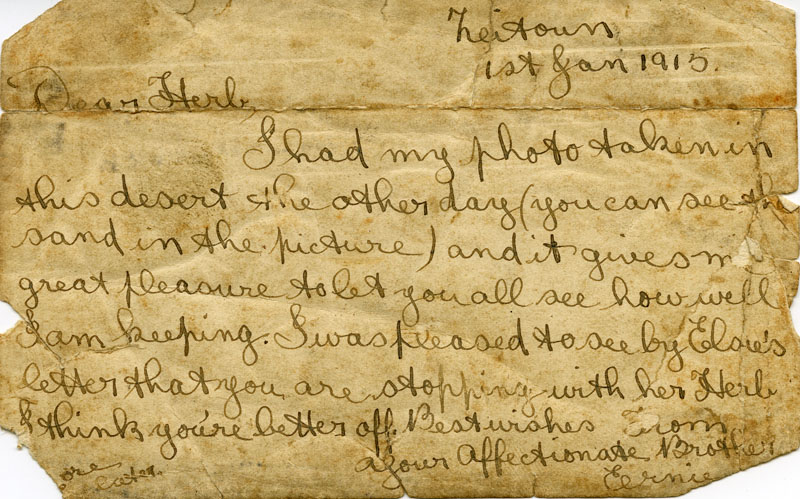 Zeitoun
1st Jan 1915.
Dear Herb,
I had my photo taken in
this desert the other day (you can see the
sand in the picture) and it gives me
great pleasure to let you all see how well
I am keeping. I was pleased to see by Elsie's
letter that you are stopping with her Herb
I think you're better off. Best wishes From
Your Affectionate Brother
Ernie